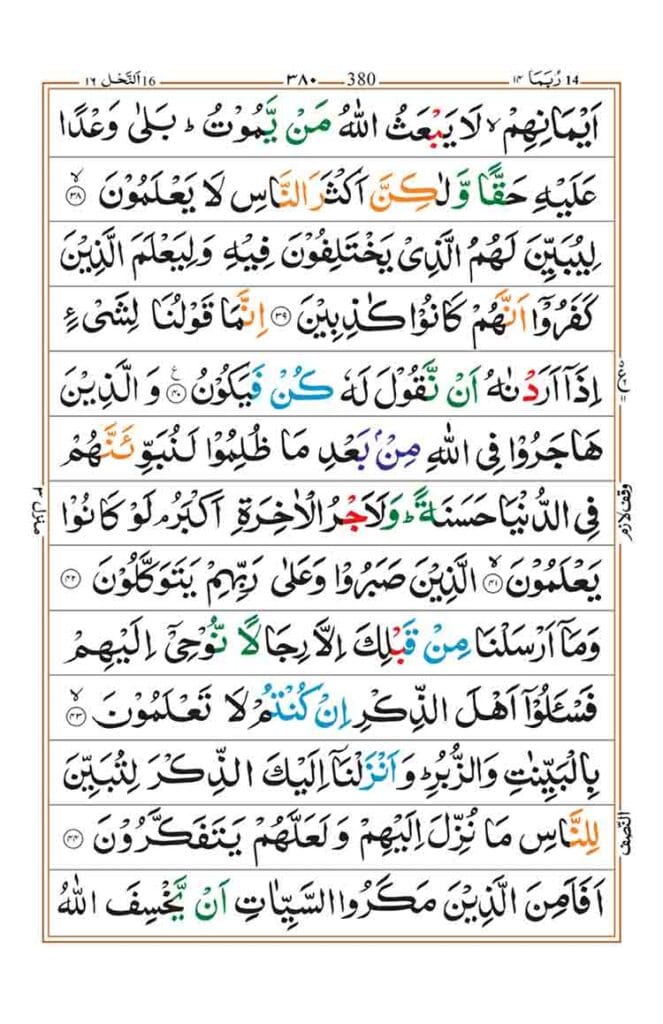 ١٤ رُبَمَا 14
380 ٣٨٠
16 اَلنَّحْل ١٦
اَيْمَانِهِمْ ۙ لَا يَبْعَثُ اللّٰهُ مَنْ يَّمُوْتُ ؕ بَلٰى وَعْدًا
عَلَيْهِ حَقًّا وَّلٰكِنَّ اَكْثَرَ النَّاسِ لَا يَعْلَمُوْنَ ۙ ﴿۳۸﴾
لِيُبَيِّنَ لَهُمُ الَّذِىْ يَخْتَلِفُوْنَ فِيْهِ وَلِيَعْلَمَ الَّذِيْنَ
كَفَرُوْۤا اَنَّهُمْ كَانُوْا كٰذِبِيْنَ ﴿۳۹﴾ اِنَّمَا قَوْلُنَا لِشَىْءٍ
اِذَاۤ اَرَدْنٰهُ اَنْ نَّقُوْلَ لَهٗ كُنْ فَيَكُوْنُ ﴿۴۰﴾ ع وَالَّذِيْنَ
هَاجَرُوْا فِى اللّٰهِ مِنْۢ بَعْدِ مَا ظُلِمُوْا لَنُبَوِّئَنَّهُمْ
فِى الدُّنْيَا حَسَنَةً ؕ وَلَاَجْرُ الْاٰخِرَةِ اَكْبَرُ ۘ لَوْ كَانُوْا
يَعْلَمُوْنَ ۙ ﴿۴۱﴾ الَّذِيْنَ صَبَرُوْا وَعَلٰى رَبِّهِمْ يَتَوَكَّلُوْنَ ﴿۴۲﴾
وَمَاۤ اَرْسَلْنَا مِنْ قَبْلِكَ اِلَّا رِجَالًا نُّوْحِىْۤ اِلَيْهِمْ
فَسْـَٔلُوْۤا اَهْلَ الذِّكْرِ اِنْ كُنْتُمْ لَا تَعْلَمُوْنَ ۙ ﴿۴۳﴾
بِالْبَيِّنٰتِ وَالزُّبُرِ ؕ وَاَنْزَلْنَاۤ اِلَيْكَ الذِّكْرَ لِتُبَيِّنَ
لِلنَّاسِ مَا نُزِّلَ اِلَيْهِمْ وَلَعَلَّهُمْ يَتَفَكَّرُوْنَ ﴿۴۴﴾
اَفَاَمِنَ الَّذِيْنَ مَكَرُوا السَّيِّاٰتِ اَنْ يَّخْسِفَ اللّٰهُ
وقف لازم
النصف
منزل ٣